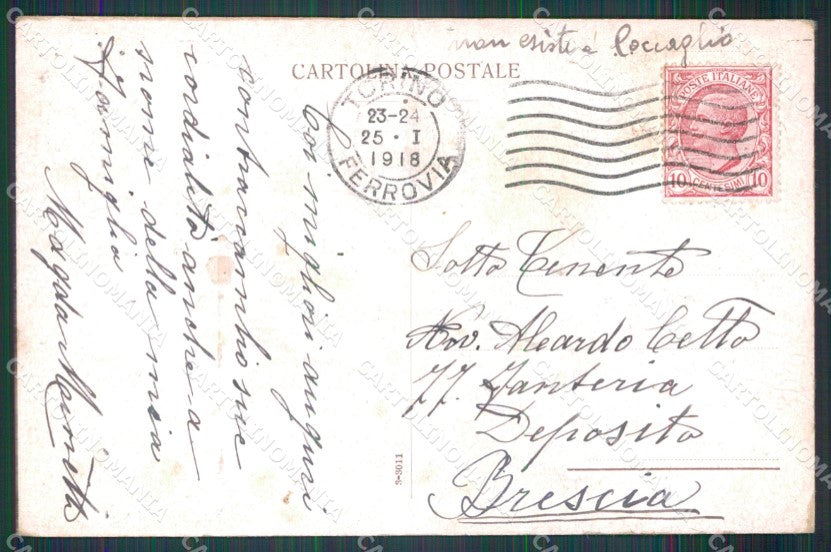 non esiste a Coccaglio
CARTOLINA POSTALE
TORINO
23-24
25 · I
1918
FERROVIA
POSTE ITALIANE
10 CENTESIMI 10
Coi migliori auguri
contraccambio sue
cordialità anche a
nome della mia
famiglia
Magda
Sotto Tenente
Nov. Aleardo Cetto
77. Fanteria
Deposito
Brescia
3-3011
CARTOLINOMANIA